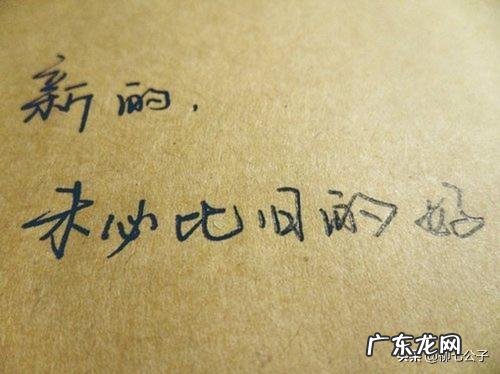 新的，
未必比旧的好
广东龙网
头条 @柳七公子